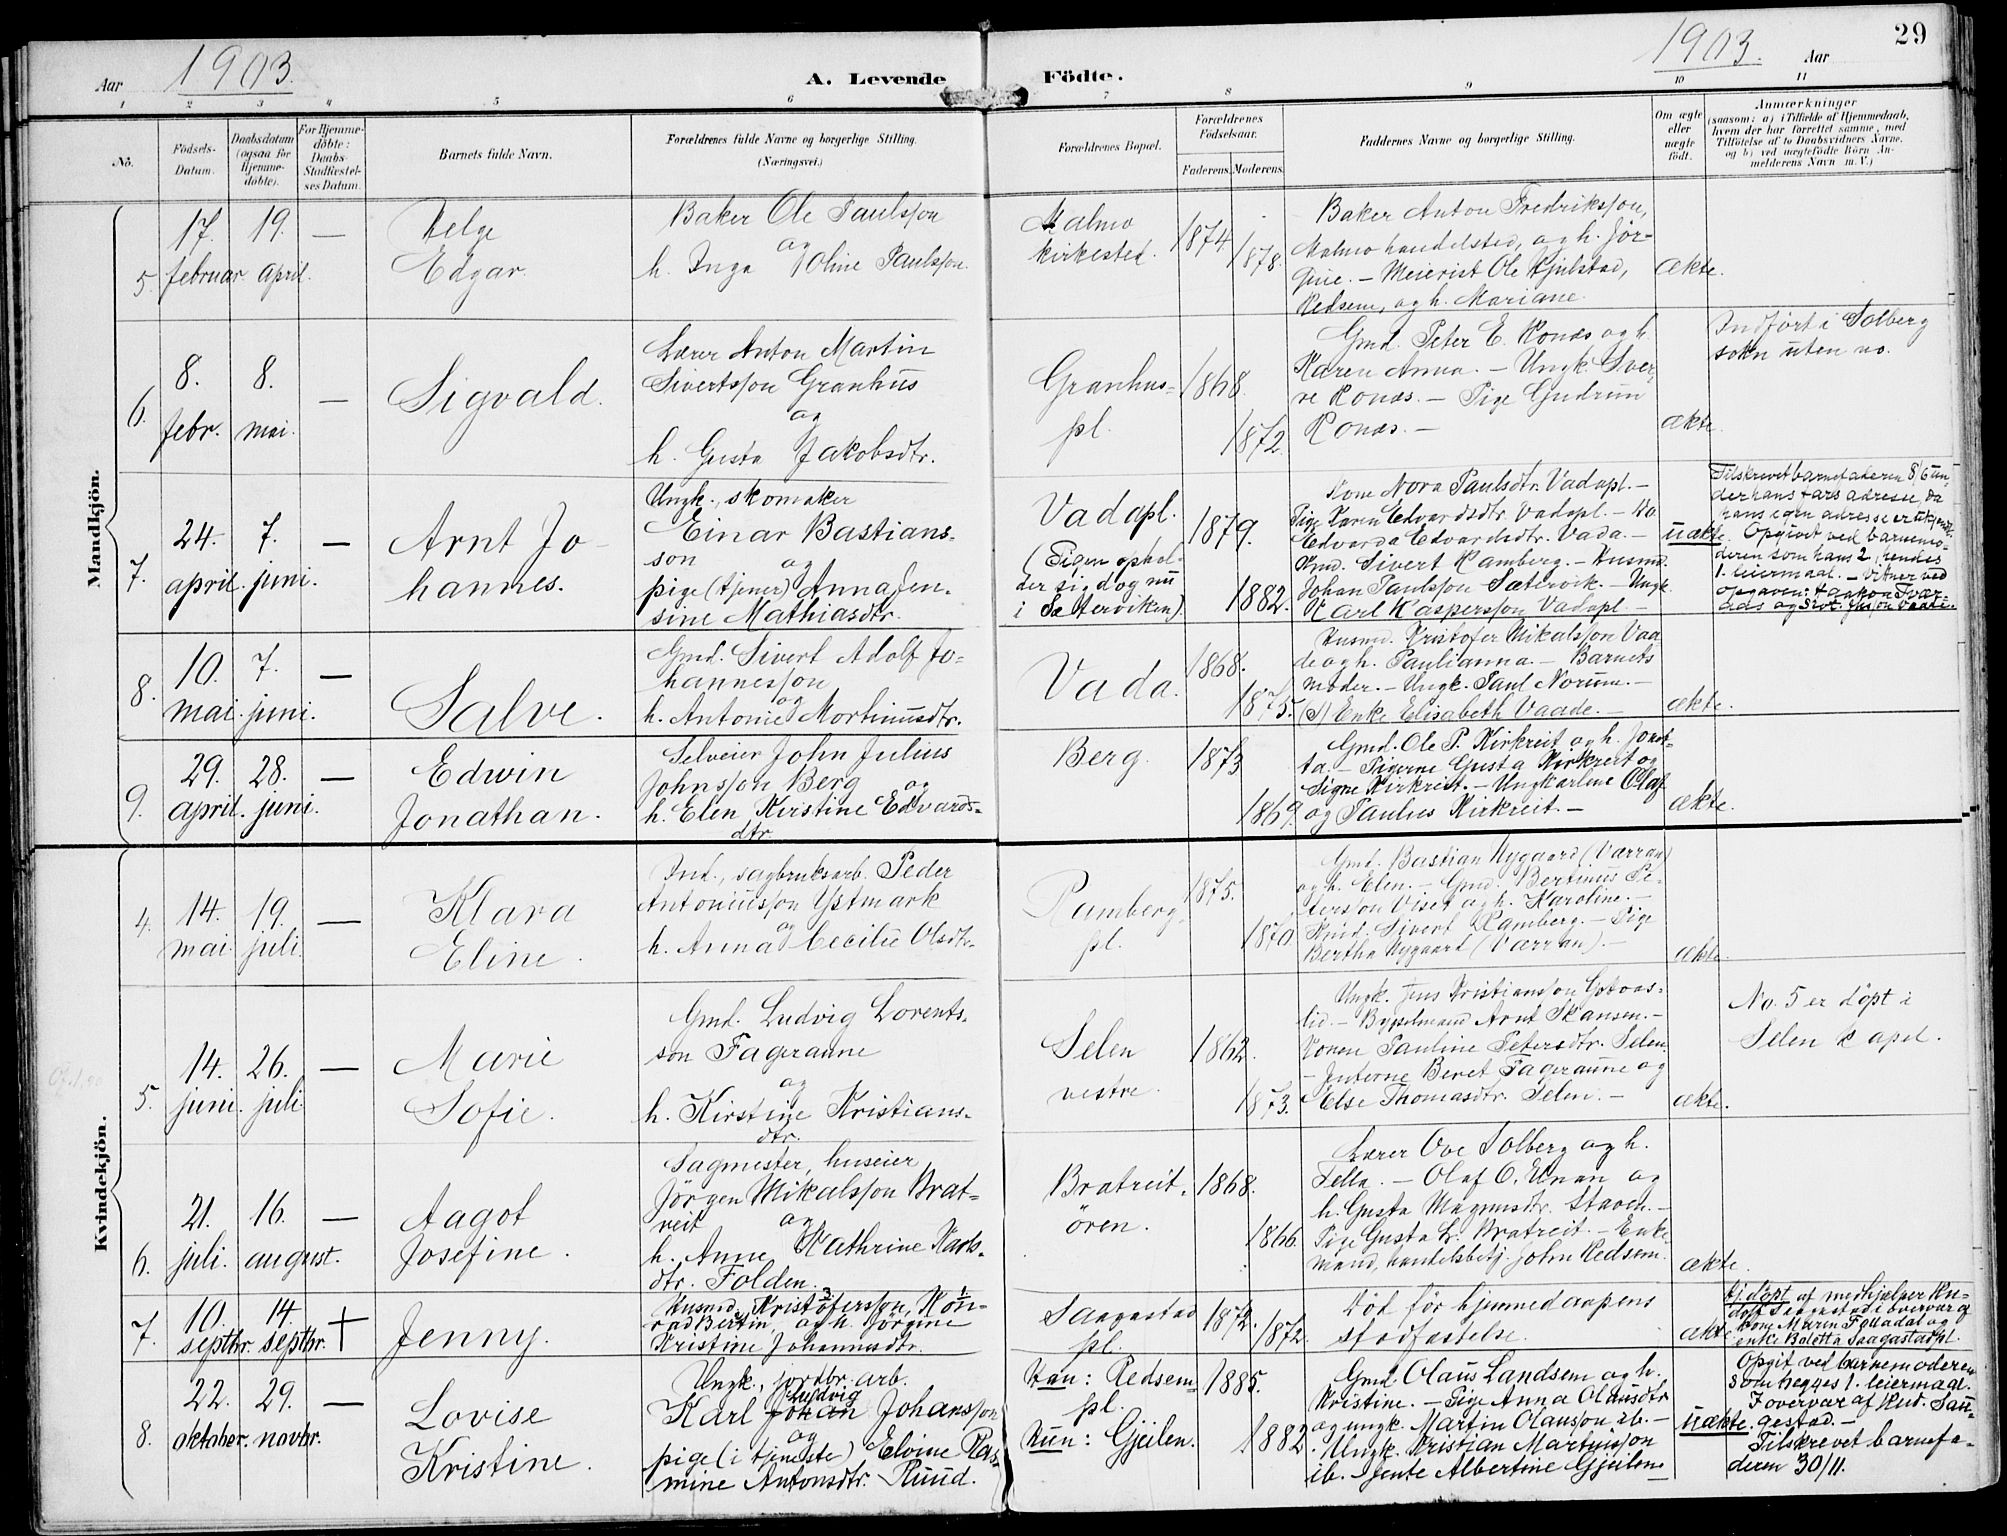 29
Aar 1903. A. Levende Födte. 1903. Aar
1 2 3 4 5 6 7 8 9 10 11
No.
Födsels-Datum.
Daabsdatum (ogsaa for Hjemme-döbte).
For Hjemme-döbte: Daabs-Stadfæstel-ses Datum.
Barnets fulde Navn.
Forældrenes fulde Navne og borgerlige Stilling.
(Næringsvei.)
Forældrenes Bopæl.
Forældrenes Födselsaar.
Faderens. Moderens.
Faddernes Navne og borgerlige Stilling.
Om ægte eller uægte födt.
Anmærkninger
(saasom: a) i Tilfælde af Hjemmedaab,
hvem der har forrettet samme, med
Tilföielse af to Daabsvidners Navne.
og b) ved uægtefödte Börn An-
melderens Navn m. V.)
Mandkjön.
5. 17. februar. 19. april. —
Helge
Edgar.
Baker Ole Paulsson
og
h. Inga Oline Paulsson.
Malmo
kirkested.
1874 1878.
Baker Anton Fredriksson,
Malmo handelsted, og h. Jör-
gine. — Meierist Ole Kjelstad,
Redsem, og h. Mariane.
ækte.
6. 8. febr. 8. mai. —
Sigvald.
Lærer Anton Martin
Sivertsson Granhus
og
h. Gusta Jakobsdtr.
Granhus-
pl.
1868. 1872.
Gmd. Peter E. Ronæs og h.
Karen Anna. — Ungk. Sver-
re Ronæs. — Pige Gudrun
Ronæs. —
ækte.
Indfört i Solberg
sokn uten no.
7. 24. april. 7. juni. —
Arnt Jo-
hannes.
Ungk., skomaker
Einar Bastians-
son og
pige (tjener) Anna Jen-
sine Mathiasdtr.
Vadapl.
(Pigen ophol-
der sig dog nu
i Sæterviken).
1879. 1882.
Kone Nora Paulsdtr. Vadapl. —
Pige Karen Edvardsdtr. Vadapl. —
Edvarda Edvardsdtr. Vada. —
Gmd. Sivert Ramberg. — Husmd.
Johan Paulsson Sætervik. — Ungk.
Karl Kaspersson Vadapl. —
uækte.
Tilskrevet barnefaderen 8/6 un-
der hans fars adresse, da
hans egen adresse er ukjendt.
Opgivet ved barnemo-
deren som hans 2, hendes
1. leiermaal. — Vitner ved
opgaven: Haakon Tvær-
aas og Sivt. Jnsson Vaade.
8. 10. mai. 7. juni. —
Salve.
Gmd. Sivert Adolf Jo-
hannesson
og
h. Antonie Mortinusdtr.
Vada.
1868. 1875.
Husmd. Kristofer Mikalsson Vaa-
de og h. Paulianna. — Barnets
moder. — Ungk. Paul Norum. —
(S) Enke Elisabeth Vaade. —
ækte.
9. 29. april. 28. juni. —
Edwin
Jonathan.
Selveier John Julius
Johnsson Berg og
h. Elen Kirstine Edvards-
dtr.
Berg.
1873 1869.
Gmd. Ole P. Kirkreit og h. Jokob-
ta. — Pigerne Gusta Kirkreit og
Signe Kirkreit. — Ungkarlene Olaf
og Paulus Kirkreit. —
ækte.
Kvindekjön.
4. 14. mai 19. juli. —
Klara
Eline.
Ind., sagbruksarb. Peder
Antoniusson Ystmark
og
h. Anna Cecilie Olsdtr.
Ramberg-
pl.
1875. 1870.
Gmd. Bastian Nygaard (Værran)
og h. Elen. — Gmd. Bertinus Pe-
tersson Viset og h. Karoline. —
Gmd. Sivert Ramberg. — Pige
Bertha Nygaard (Værran). —
ækte.
5. 14. juni. 26. juli. —
Marie
Sofie.
Gmd. Ludvig Lorents-
son Fageraune
og
h. Kirstine Kristians-
dtr.
Selen
vestre.
1862. 1873.
Ungk. Jens Kristiansson Gotvas-
lid. — Bygselmand Arnt Skansen. —
Konen Pauline Petersdtr. Selen.
— Jenterne Beret Fageraune og
Else Thomasdtr. Selen. —
ækte.
No. 5 er döpt i
Selen kapel.
6. 21. juli. 16. august. —
Aagot
Josefine.
Sagmester, huseier
Jörgen Mikalsson Brat-
reit og
h. Anne Kathrine Karls-
dtr. Folden.
Bratreit-
ören.
1868. 1866.
Lærer Ove Solberg og h.
Tella. — Olaf O. Unan og
h. Gusta Magnusdtr. Staven. —
Pige Gusta L. Bratreit. — Enke-
mand, handelsbetj. John Redsem.
ækte.
7. 10. septbr. 14. septbr. †
Jenny.
Husmd. Kristofersson, Kon-
rad Bertin og h. Jörgine
Kristine Johannesdtr.
Saagastad
pl.
1872. 1872.
Död för hjemmedaapens
stadfæstelse.
ækte.
Hj.döpt af medhjælper Ru-
dolf Saagastad i overvær af
kone Maren Folladal og
enke Boletta Saagastadpl.
8. 22. oktober. 29. novbr. —
Lovise
Kristine.
Ungk., jordbr. arb.
Karl Johan Ludvig Johansson
og
pige (i tjeneste) Elvine Ras-
mine Antonsdtr. Ruud.
Han: Redsem-
pl.
Hun: Gjeilen.
1885. 1882.
Gmd. Olaus Landsem og h.
Kristine. — Pige Anna Olausdtr.
og ungk. Martin Olausson ib. —
Ungk. Kristian Martinsson
ib. — Jente Albertine Gjeilen.
uækte.
Opgit ved barnemoderen
som begges 1. leiermaal.
I overvær af Rud. Saa-
gestad. —
Tilskrevet barnefa-
deren 30/11.